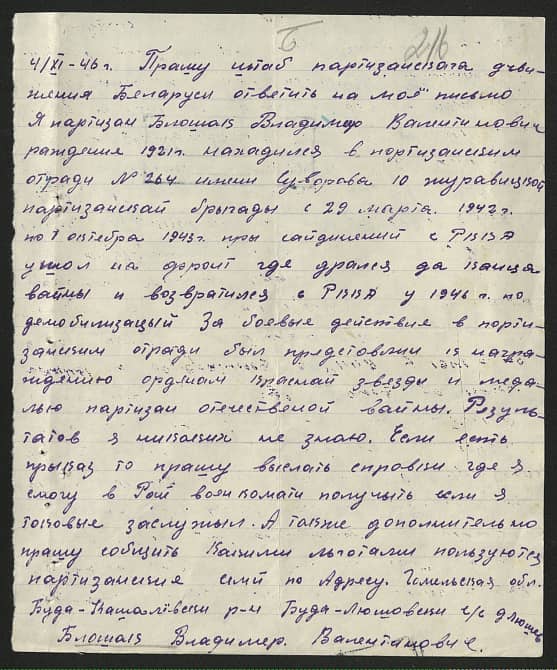 Б 216
4/XI-46 г. Прашу штаб партизанскага дви-
жения Беларуси ответить на моё письмо
Я партизан Блошак Владимер Валентинович
рождения 1921 г. находился в портизанским
отряди № 264 имени Суворова 10 журавицкой
партизанскай брыгады с 29 марта. 1942 г.
по 1 октебра 1943 г. пры сайдинений с РККА
ушол на фронт где дрался да канца
вайны и возвратился с РККА у 1946 г. по
демобилизацый За боевые действие в порти-
занским отради был предстовлин к награ-
ждению орденам краснай звезди и меда-
лью партизан отечественой вайны. Резуль-
татов я никаких не знаю. Если есть
прыказ то прашу выслать справки где я
смогу в Рой воянкомати получыть если я
токовые заслужыл. А также дополнительно
прашу собщить какими льготами пользуются
партизанские семй по Адресу. Гомельская обл.
Буда-Кашалёвски р-н Буда-Люшовски с/с д Люшев
Блошак Владимер. Валентинович.